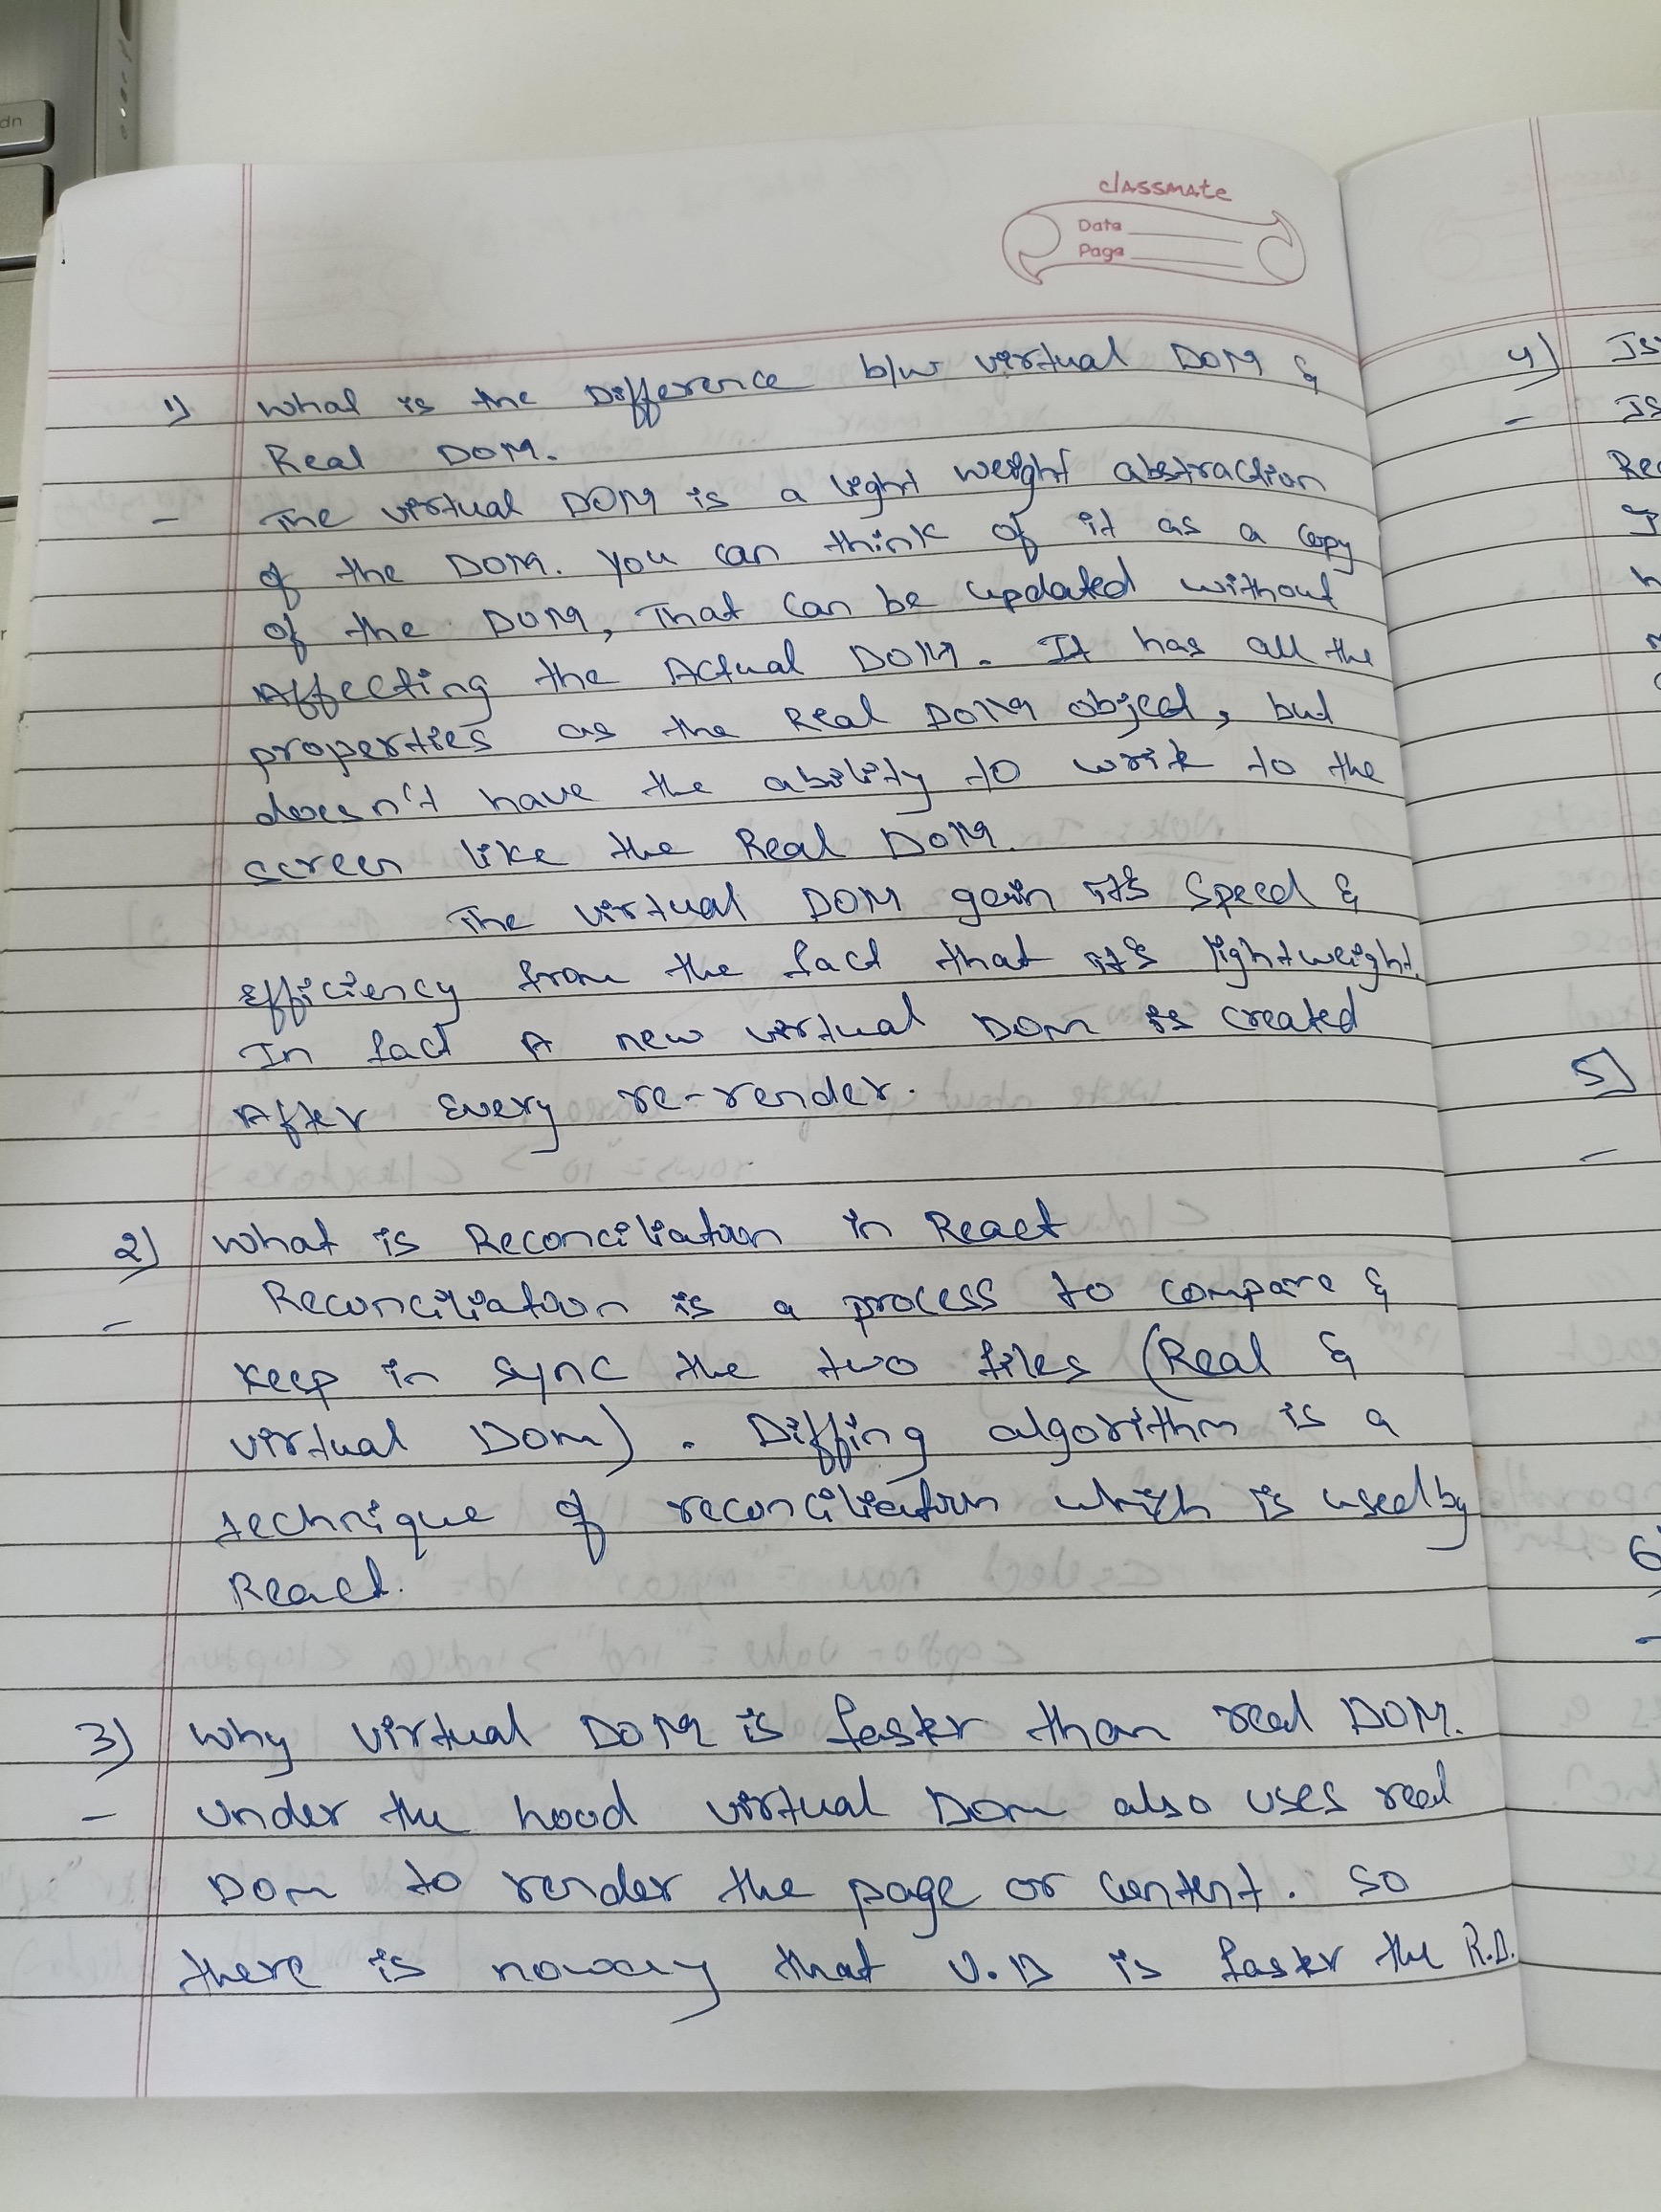 dn
classmate
Date
Page
1) What is the Difference b/w virtual DOM &
Real DOM.
- The virtual DOM is a light weight abstraction
of the DOM. You can think of it as a copy
of the DOM, That can be updated without
Affecting the Actual DOM. It has all the
properties as the Real DOM object, but
doesn't have the ability to write to the
screen like the Real DOM.
The virtual DOM gain it's speed &
Efficiency from the fact that it's lightweight.
In fact A new virtual DOM is created
After Every re-render.
2) What is Reconciliation in React
- Reconciliation is a process to compare &
keep in sync the two files (Real &
virtual Dom). Diffing algorithm is a
technique of reconciliation which is used by
React.
3) Why virtual DOM is faster than real DOM.
- Under the hood virtual Dom also uses real
Dom to render the page or content. So
there is noway that V.D is faster the R.D.
4)
-
5)
-
6
-